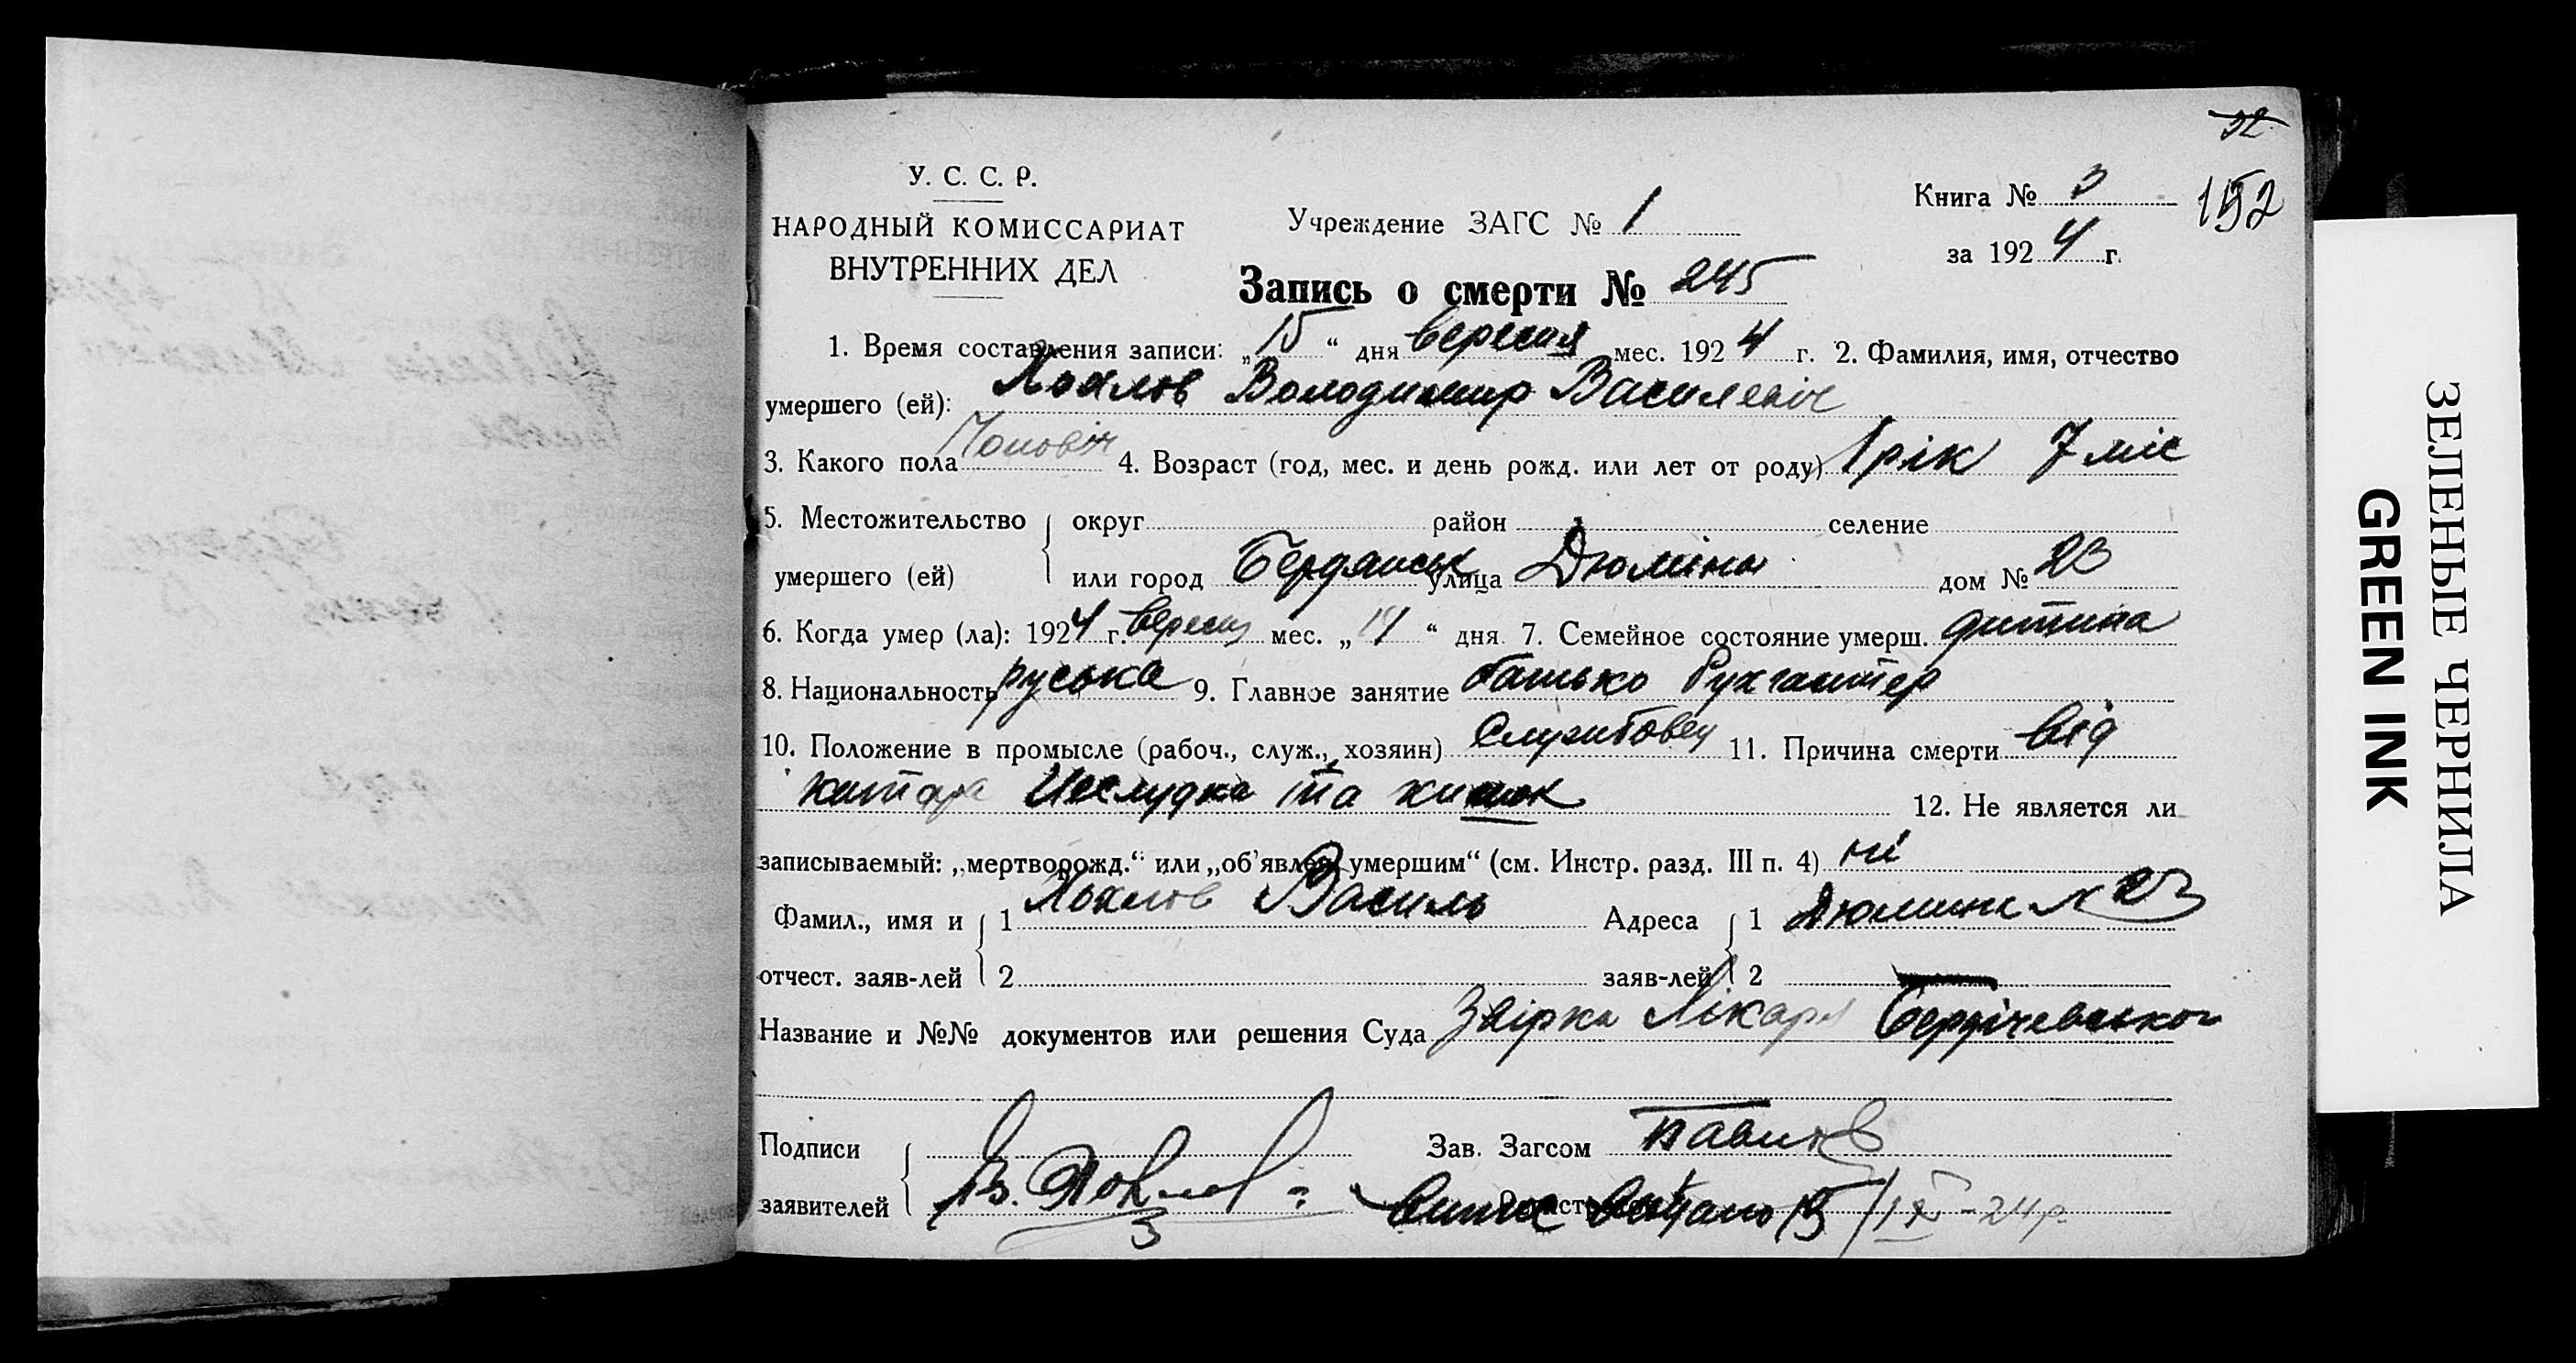 32
У. С. С. Р.
НАРОДНЫЙ КОМИССАРИАТ
ВНУТРЕННИХ ДЕЛ
Учреждение ЗАГС № 1
Книга № 3
152
за 1924 г.
Запись о смерти № 245
1. Время составления записи: „15“ дня вересня мес. 1924 г. 2. Фамилия, имя, отчество
умершего (ей): Хохлов Володимир Василевіч
3. Какого пола Чоловіч 4. Возраст (год, мес. и день рожд. или лет от роду) 1 рік 7 міс
5. Местожительство округ район селение
умершего (ей) или город Бердянськ улица Дюміна дом № 23
6. Когда умер (ла): 1924 г. вересня мес. „14“ дня 7. Семейное состояние умерш. дитина
8. Национальность руська 9. Главное занятие батько бухгалтер
10. Положение в промысле (рабоч., служ., хозяин) Службовец 11. Причина смерти від
катара Желудка та кишок 12. Не является ли
записываемый: „мертворожд.“ или „об’явлен умершим“ (см. Инстр. разд. III п. 4) ні
Фамил., имя и 1 Хохлов Василь Адреса 1 Дюмина № 23
отчест. заяв-лей 2 заяв-лей 2
Название и №№ документов или решения Суда Лікаря Бердічевського
Подписи Зав. Загсом
заявителей В. Хохлов 15/IX-24р.
3
ЗЕЛЕНЫЕ ЧЕРНИЛА
GREEN INK